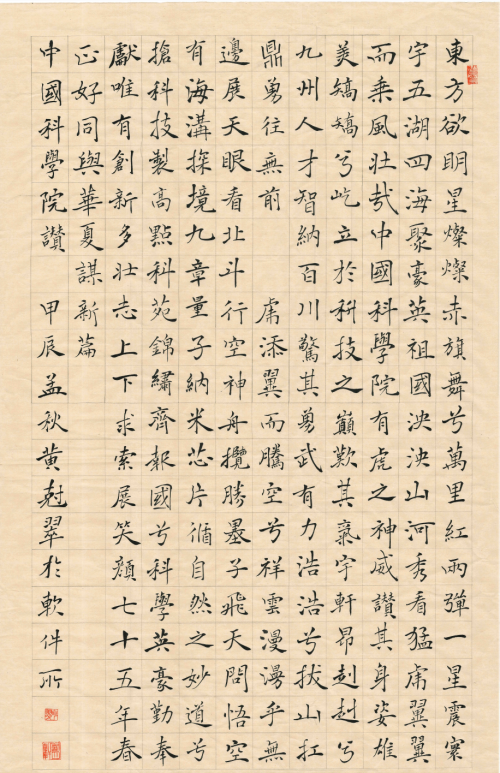 東方欲明星燦燦赤旗舞兮萬里紅兩彈一星震寰
宇五湖四海聚豪英祖國泱泱山河秀看猛虎翼翼
而乘風壯哉中國科學院有虎之神威讚其身姿雄
美矯矯兮屹立於科技之巔歎其氣宇軒昂赳赳兮
九州人才智納百川驚其勇武有力浩浩兮拔山扛
鼎勇往無前 虎添翼而騰空兮祥雲漫漫乎無
邊展天眼看北斗行空神舟攬勝墨子飛天問悟空
有海溝探境九章量子納米芯片循自然之妙道兮
搶科技製高點科苑錦繡齊報國兮科學英豪勤奉
獻唯有創新多壯志上下求索展笑顏七十五年春
正好同與華夏謀新篇
中國科學院讚 甲辰孟秋黄尅翠於軟件所